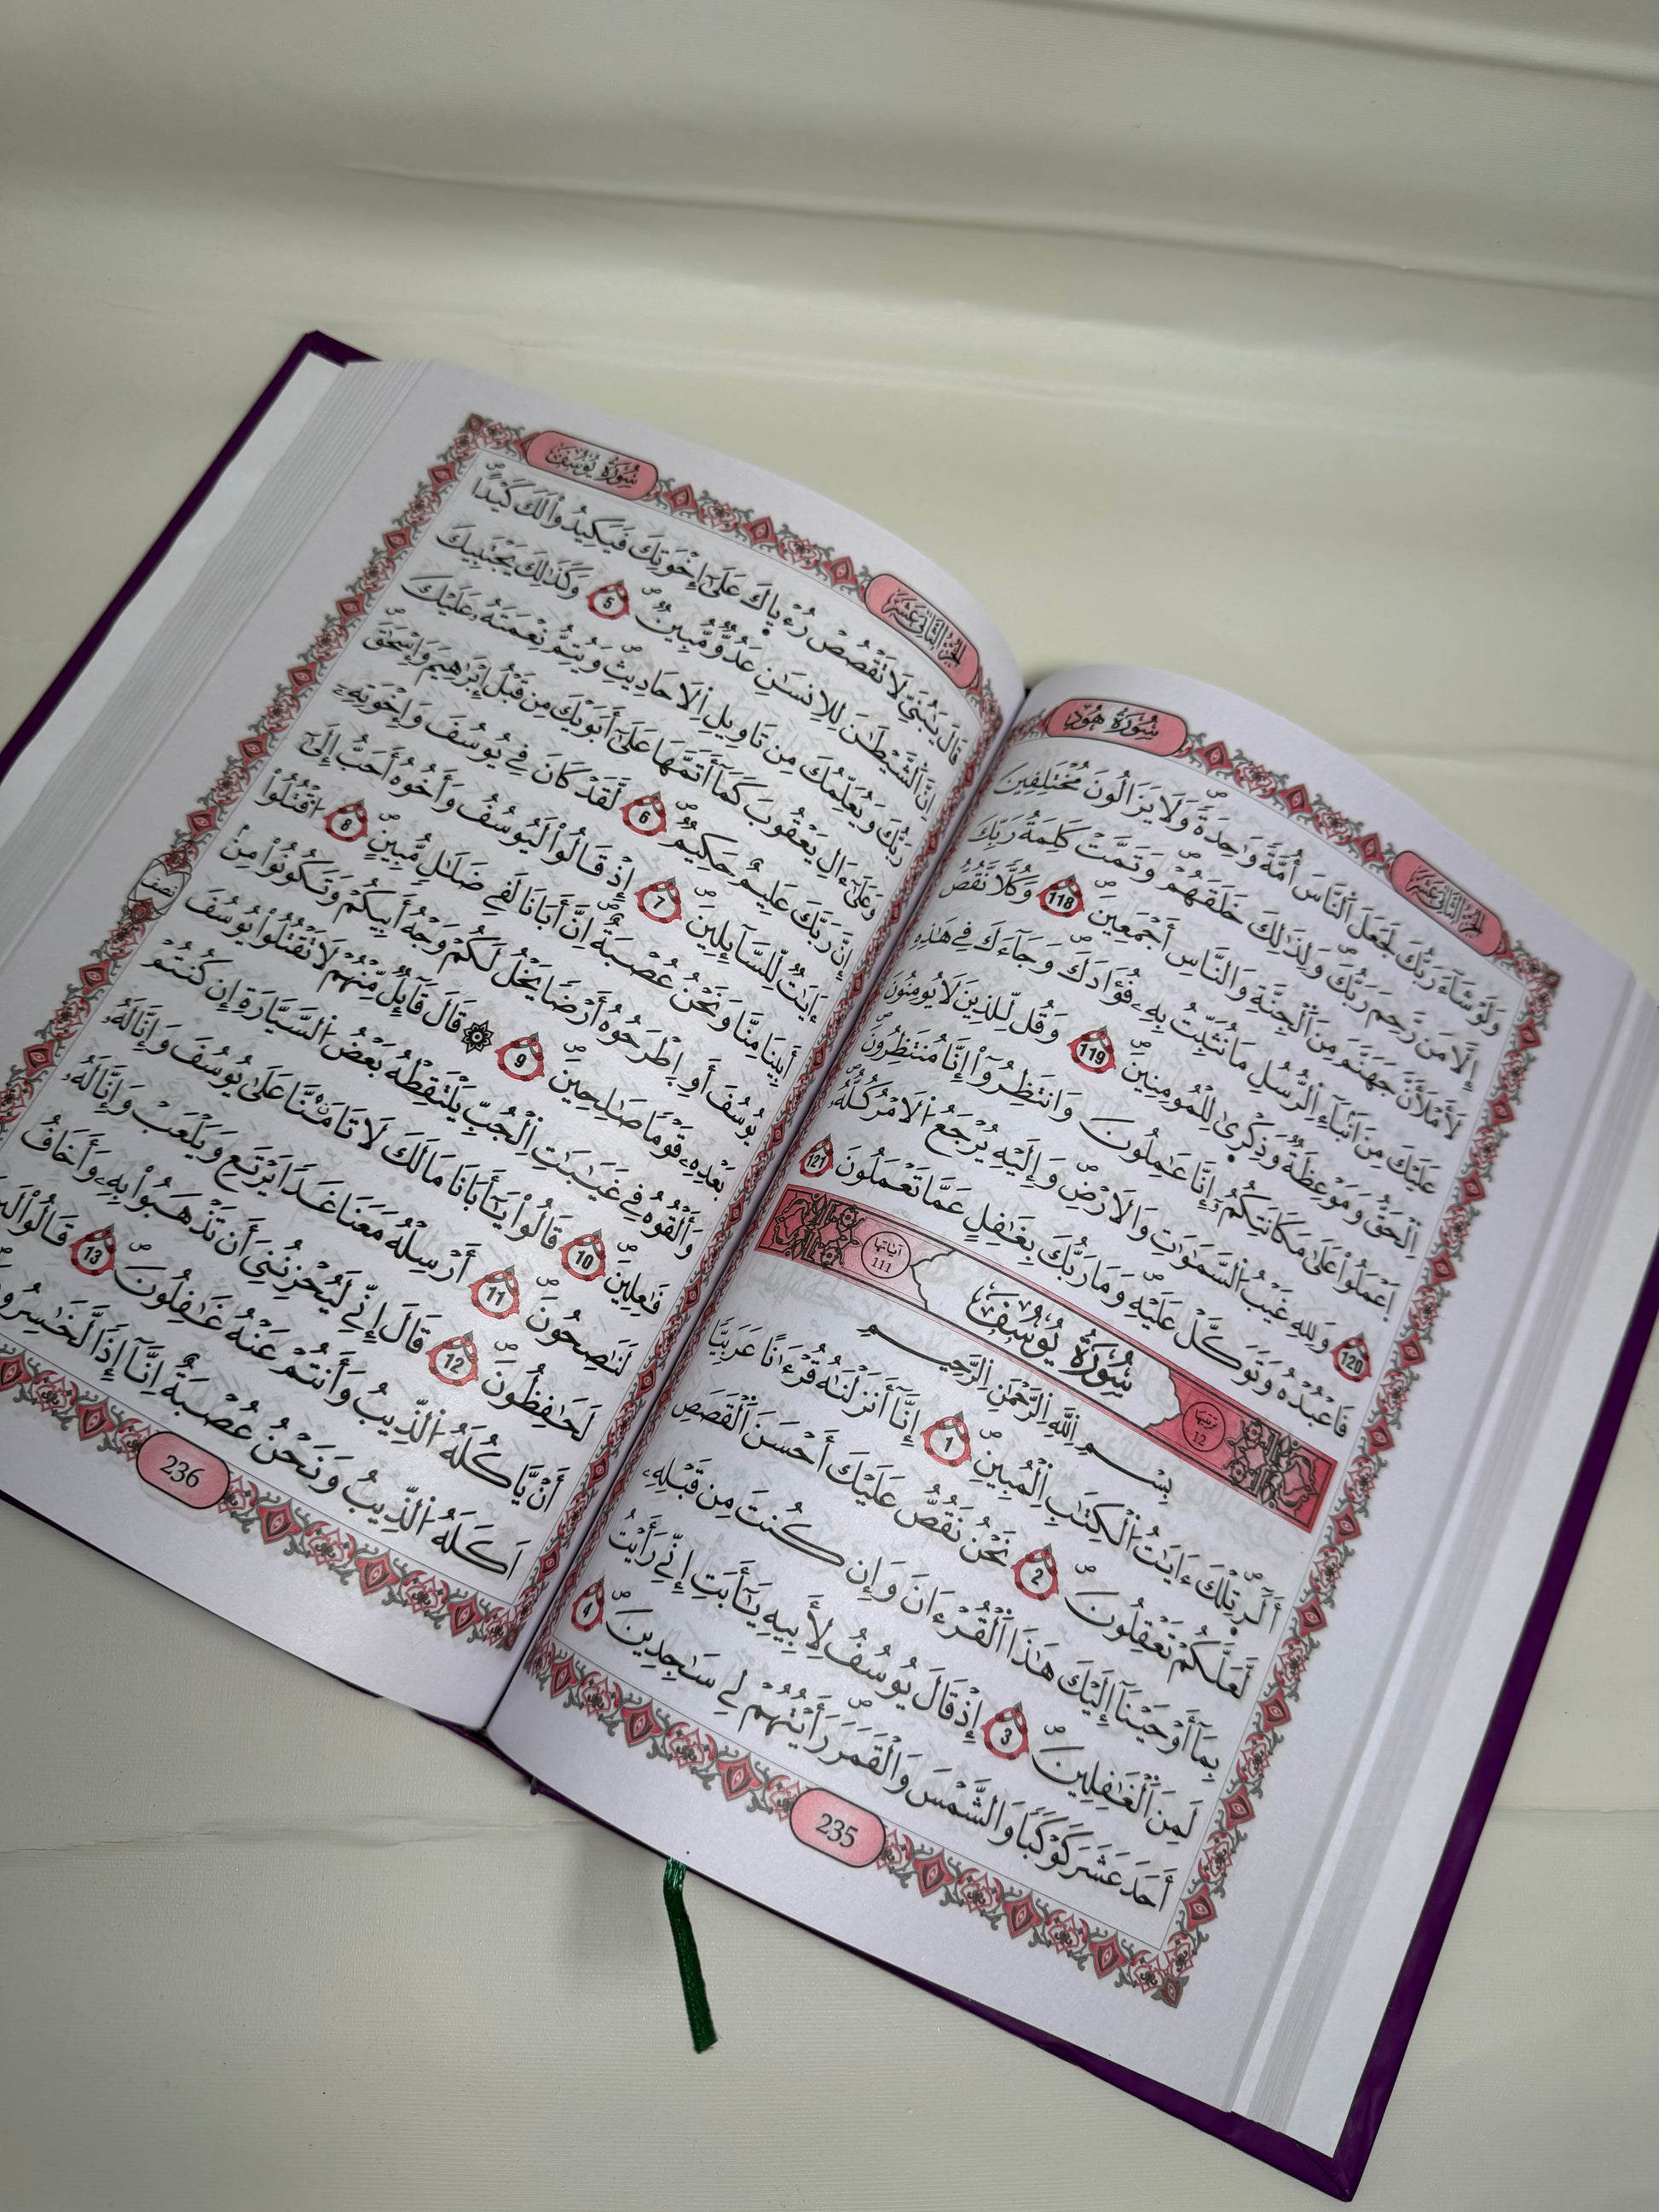 سُورَةُ هُودٍ
الجُزْءُ الثَّانِي عَشَرَ
وَلَوْ شَآءَ رَبُّكَ لَجَعَلَ اَ۬لنَّاسَ أُمَّةٗ وَٰحِدَةٗ وَلَا يَزَالُونَ مُخْتَلِفِينَ
إِلَّا مَن رَّحِمَ رَبُّكَ وَلِذَٰلِكَ خَلَقَهُمْ وَتَمَّتْ كَلِمَةُ رَبِّكَ
لَأَمْلَأَنَّ جَهَنَّمَ مِنَ اَ۬لْجِنَّةِ وَالنَّاسِ أَجْمَعِينَ 118 وَكُلّٗا نَّقُصُّ
عَلَيْكَ مِنَ اَنۢبَآءِ اِ۬لرُّسُلِ مَا نُثَبِّتُ بِهِۦ فُؤَادَكَ وَجَآءَكَ فِي هَٰذِهِ
اِ۬لْحَقُّ وَمَوْعِظَةٞ وَذِكْرٜىٰ لِلْمُومِنِينَ 119 وَقُل لِّلذِينَ لَا يُومِنُونَ
اَ۪عْمَلُواْ عَلَىٰ مَكَانَتِكُمُۥٓ إِنَّا عَٰمِلُونَ وَانتَظِرُوٓاْ إِنَّا مُنتَظِرُونَ
120 وَلِلهِ غَيْبُ اُ۬لسَّمَٰوَٰتِ وَالَارْضِ وَإِلَيْهِ يُرْجَعُ اُ۬لَامْرُ كُلُّهُۥ
فَاعْبُدْهُ وَتَوَكَّلْ عَلَيْهِ وَمَا رَبُّكَ بِغَٰفِلٍ عَمَّا تَعْمَلُونَ 121
ترتيبها 12 سُورَةُ يُوسُفَ آياتها 111
بِسْمِ اِ۬للَّهِ اِ۬لرَّحْمَٰنِ اِ۬لرَّحِيمِ
أَلَٓرٜ تِلْكَ ءَايَٰتُ اُ۬لْكِتَٰبِ اِ۬لْمُبِينِ 1 إِنَّآ أَنزَلْنَٰهُ قُرْءَٰناً عَرَبِيّاٗ
لَّعَلَّكُمْ تَعْقِلُونَ 2 نَحْنُ نَقُصُّ عَلَيْكَ أَحْسَنَ اَ۬لْقَصَصِ
بِمَآ أَوْحَيْنَآ إِلَيْكَ هَٰذَا اَ۬لْقُرْءَانَ وَإِن كُنتَ مِن قَبْلِهِۦ
لَمِنَ اَ۬لْغَٰفِلِينَ 3 إِذْ قَالَ يُوسُفُ لِأَبِيهِ يَٰٓأَبَتِ إِنِّي رَأَيْتُ
أَحَدَ عَشَرَ كَوْكَباٗ وَالشَّمْسَ وَالْقَمَرَ رَأَيْتُهُمْ لِي سَٰجِدِينَ 4
235
سُورَةُ يُوسُفَ
الجُزْءُ الثَّانِي عَشَرَ
قَالَ يَٰبُنَيِّ لَا تَقْصُصْ رُءْيٜاكَ عَلَىٰٓ إِخْوَتِكَ فَيَكِيدُواْ لَكَ كَيْداً
اِنَّ اَ۬لشَّيْطَٰنَ لِلِانسَٰنِ عَدُوّٞ مُّبِينٞ 5 وَكَذَٰلِكَ يَجْتَبِيكَ
رَبُّكَ وَيُعَلِّمُكَ مِن تَاوِيلِ اِ۬لَاحَادِيثِ وَيُتِمُّ نِعْمَتَهُۥ عَلَيْكَ
وَعَلَىٰٓ ءَالِ يَعْقُوبَ كَمَآ أَتَمَّهَا عَلَىٰٓ أَبَوَيْكَ مِن قَبْلُ إِبْرَٰهِيمَ وَإِسْحَٰقَ
إِنَّ رَبَّكَ عَلِيمٌ حَكِيمٞ 6 لَّقَدْ كَانَ فِي يُوسُفَ وَإِخْوَتِهِۦٓ
ءَايَٰتٞ لِّلسَّآئِلِينَ 7 إِذْ قَالُواْ لَيُوسُفُ وَأَخُوهُ أَحَبُّ إِلَىٰٓ
أَبِينَا مِنَّا وَنَحْنُ عُصْبَةٌ اِنَّ أَبَانَا لَفِي ضَلَٰلٖ مُّبِينٍ 8 اُ۟قْتُلُواْ
يُوسُفَ أَوِ اِ۪طْرَحُوهُ أَرْضاٗ يَخْلُ لَكُمْ وَجْهُ أَبِيكُمْ وَتَكُونُواْ مِنۢ
بَعْدِهِۦ قَوْماٗ صَٰلِحِينَ 9 ۞ قَالَ قَآئِلٞ مِّنْهُمْ لَا تَقْتُلُواْ يُوسُفَ
وَأَلْقُوهُ فِي غَيَٰبَٰتِ اِ۬لْجُبِّ يَلْتَقِطْهُ بَعْضُ اُ۬لسَّيَّارَةِ إِن كُنتُمْ
فَٰعِلِينَ 10 قَالُواْ يَٰٓأَبَانَا مَا لَكَ لَا تَامَ۬نَّا عَلَىٰ يُوسُفَ وَإِنَّا لَهُۥ
لَنَٰصِحُونَ 11 أَرْسِلْهُ مَعَنَا غَداٗ يَرْتَعِ وَيَلْعَبْ وَإِنَّا لَهُۥ
لَحَٰفِظُونَ 12 قَالَ إِنِّي لَيُحْزِنُنِيَ أَن تَذْهَبُواْ بِهِۦ وَأَخَافُ
أَنْ يَّاكُلَهُ اُ۬لذِّيبُ وَأَنتُمْ عَنْهُ غَٰفِلُونَ 13 قَالُواْ
اَكَلَهُ اُ۬لذِّيبُ وَنَحْنُ عُصْبَةٌ اِنَّآ إِذاٗ
نصف
236